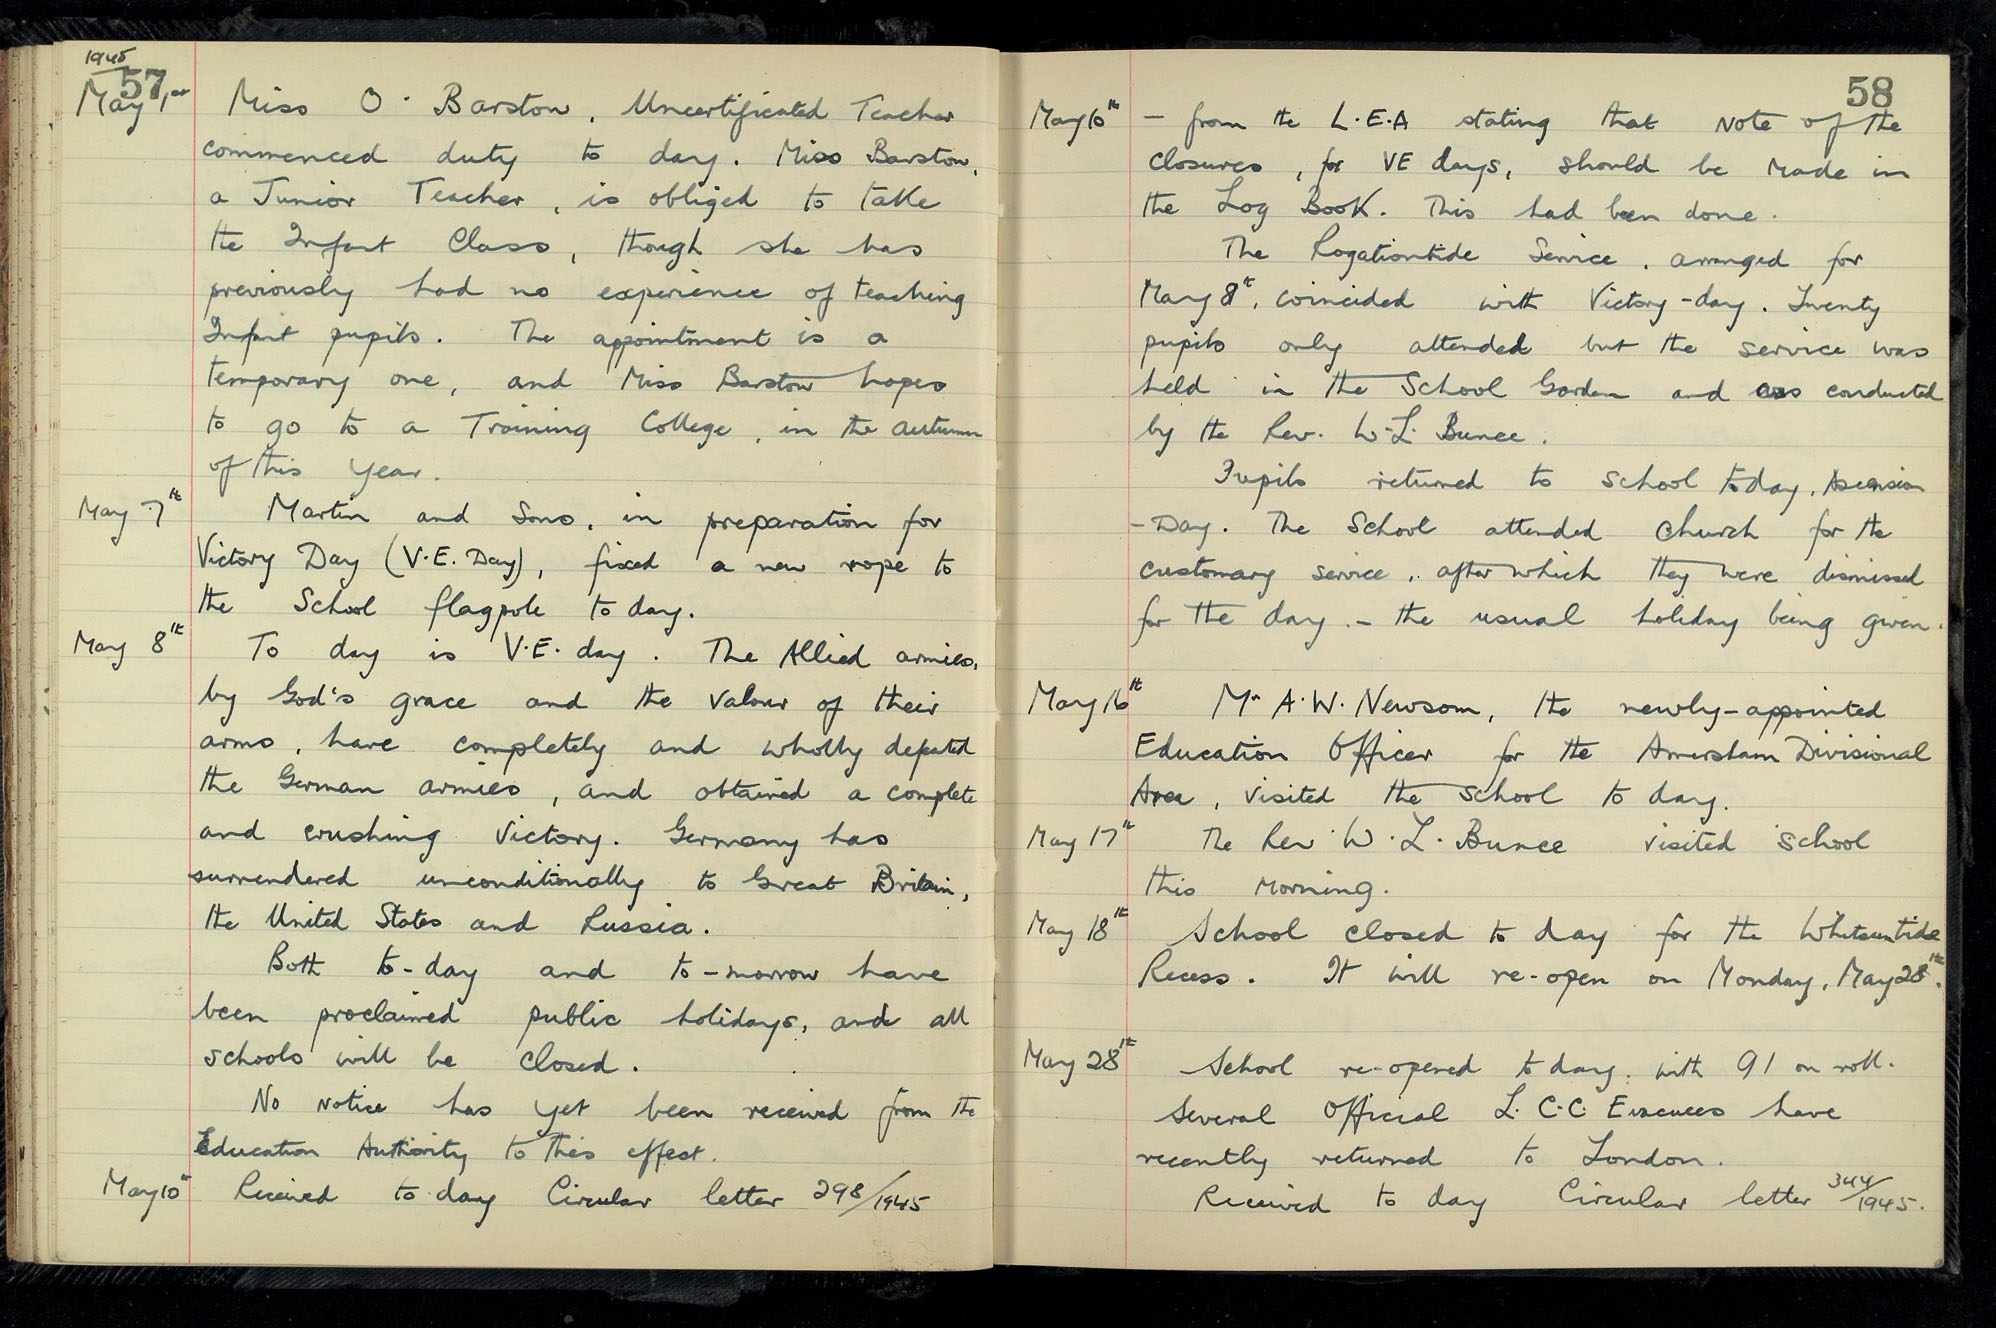 1945
57
May 1st Miss O. Barston, Uncertificated Teacher
commenced duty to day. Miss Barston,
a Junior Teacher, is obliged to take
the Infant Class, though she has
previously had no experience of teaching
Infant pupils. The appointment is a
temporary one, and Miss Barston hopes
to go to a Training College, in the autumn
of this year.
May 7th Martin and Sons, in preparation for
Victory Day (V.E. Day), fixed a new rope to
the School flagpole to day.
May 8th To day is V.E. day. The Allied armies,
by God's grace and the valour of their
arms, have completely and wholly defeated
the German armies, and obtained a complete
and crushing victory. Germany has
surrendered unconditionally to Great Britain,
the United States and Russia.
Both to-day and to-morrow have
been proclaimed public holidays, and all
schools will be closed.
No notice has yet been received from the
Education Authority to this effect.
May 10th Received to day Circular letter 298/1945
58
May 10th - from the L.E.A stating that note of the
closures, for VE days, should be made in
the Log Book. This had been done.
The Rogationtide Service, arranged for
May 8th, coincided with Victory-day. Twenty
pupils only attended but the service was
held in the School Garden and was conducted
by the Rev. W.L. Bunce.
Pupils returned to school today, Ascension
-Day. The School attended church for the
customary service, after which they were dismissed
for the day. - the usual holiday being given.
May 16th Mr A.W. Newsom, the newly-appointed
Education Officer for the Amersham Divisional
Area, visited the school to day.
May 17th The Rev W.L. Bunce visited school
this morning.
May 18th School closed to day for the Whitsuntide
Recess. It will re-open on Monday, May 28th.
May 28th School re-opened to day, with 91 on roll.
Several Official L.C.C. Evacuees have
recently returned to London.
Received to day Circular letter 344/1945.